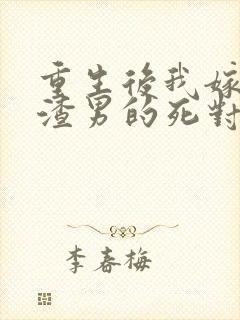 重生後我嫁
渣男的死對
李春梅